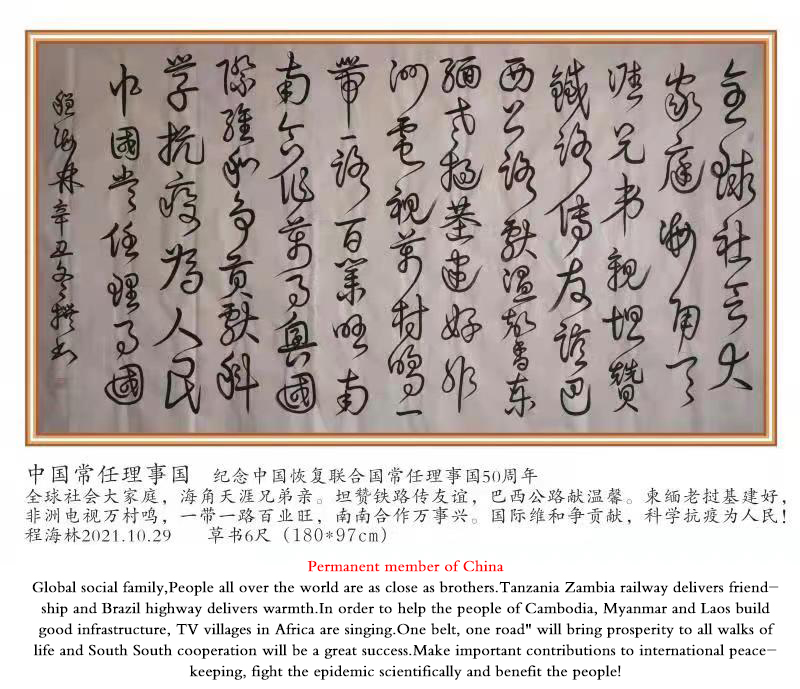 全球社会大
家庭海角天
涯兄弟親坦贊
鐵路傳友誼巴
西公路獻溫馨柬
緬老撾基建好非
洲電視萬村鳴一
帶一路百業旺南
南合作萬事興國
際維和爭貢獻科
学抗疫為人民
中國常任理事國
程海林辛丑冬撰书
中国常任理事国 纪念中国恢复联合国常任理事国50周年
全球社会大家庭，海角天涯兄弟亲。坦赞铁路传友谊，巴西公路献温馨。柬缅老挝基建好，
非洲电视万村鸣，一带一路百业旺，南南合作万事兴。国际维和争贡献，科学抗疫为人民！
程海林2021.10.29 草书6尺（180*97cm）
Permanent member of China
Global social family,People all over the world are as close as brothers.Tanzania Zambia railway delivers friend-
ship and Brazil highway delivers warmth.In order to help the people of Cambodia, Myanmar and Laos build
good infrastructure, TV villages in Africa are singing.One belt, one road" will bring prosperity to all walks of
life and South South cooperation will be a great success.Make important contributions to international peace-
keeping, fight the epidemic scientifically and benefit the people!